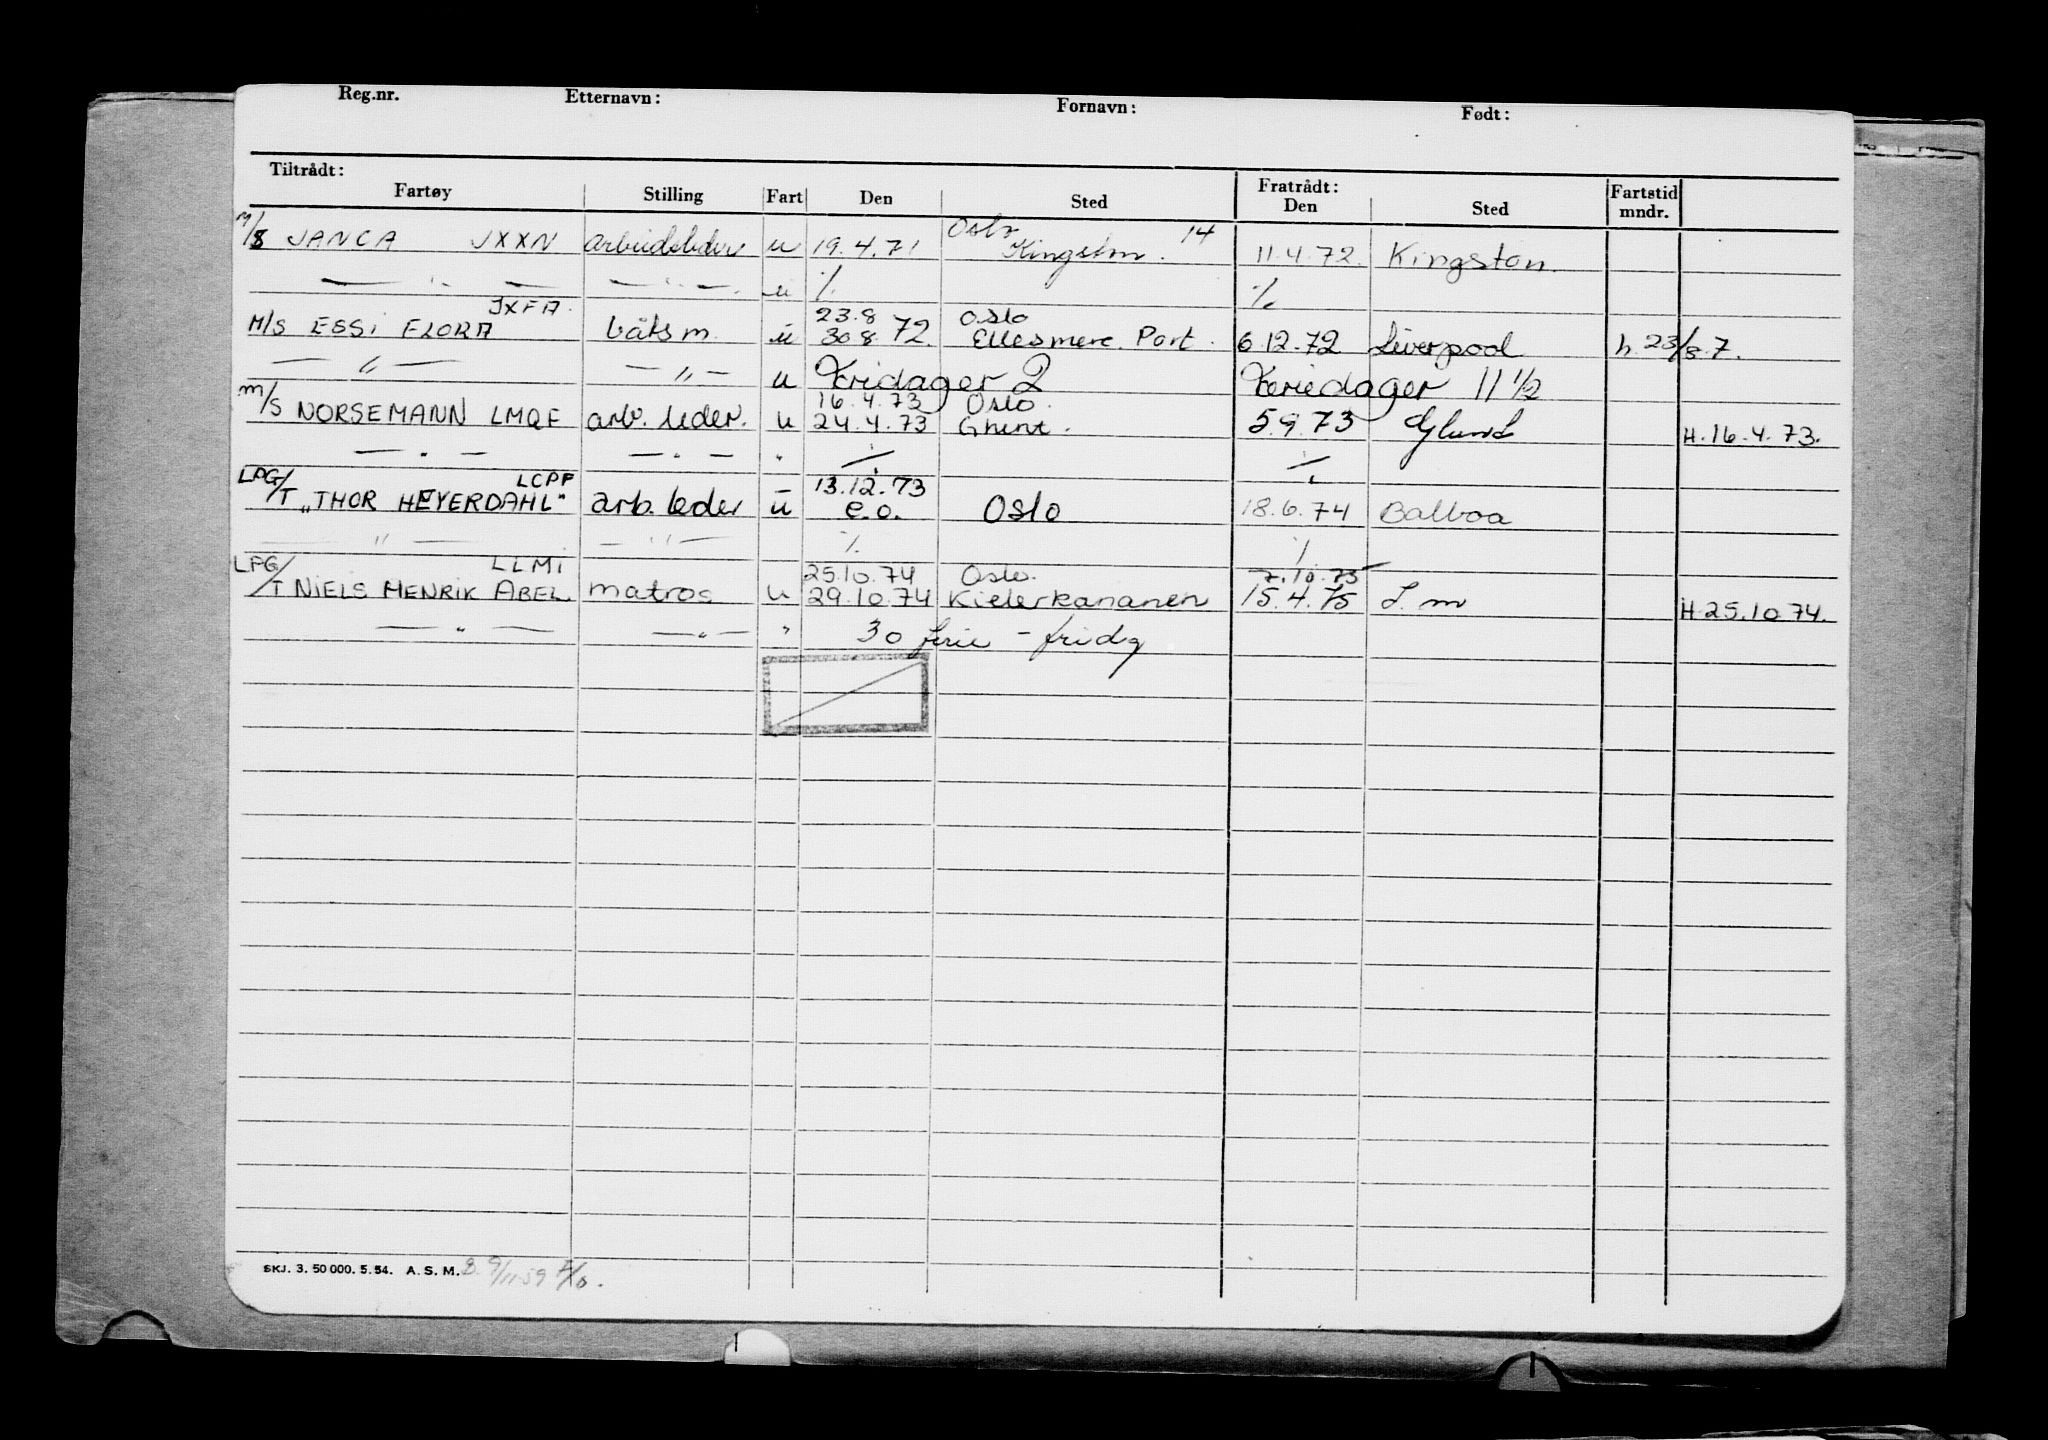 Reg.nr. Etternavn: Fornavn: Født:
Tiltrådt: Fratrådt:
Fartøy Stilling Fart Den Sted Den Sted Fartstid mndr.
Oslo 14
M/S JANCA JXXN arbeidsleder u 19.4.71 Kingston. 11.4.72. Kingston.
— " — — " —. u ./. ./.
JXFA. 23.8 Oslo
M/S ESSI FLORA båtsm. u 30.8.72. Ellesmere. Port. 6.12.72 Liverpool h. 23/8.7.
— " — — " — u Feridager 2 Feriedager 11 1/2
16.4.73 Oslo.
M/S NORSEMANN LMQF arb. leder. u 24.4.73 Ghent. 5.9.73 H.16.4.73.
— " — — " — " ./. ./.
LCPF 13.12.73
LPG/T „THOR HEYERDAHL" arb. leder u e.o. Oslo 18.6.74 Balboa
— " — — " — ./. ./.
LLMI 25.10.74 Oslo. 7.10.75
LPG/T NIELS HENRIK ABEL matros u 29.10.74 Kielerkananen 15.4.75 S. m H.25.10.74.
— " — — " — " 30 ferie - fridg
SKJ. 3. 50 000. 5. 54. A. S. M. 9/11-59